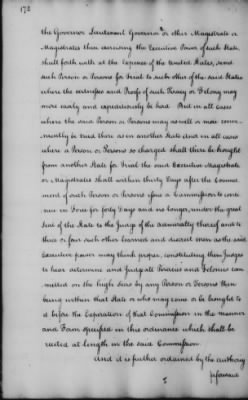 172
the Governor Lieutenant Governor or other Magistrate or
Magistrates then exercising the Executive Power of such State
shall forth with at the Expence of the United States, send
such Person or Persons for trial to such other of the said States
where the witnesses and Proofs of such Piracy or Felony may
more easily and expeditiously be had. And in all cases
where the said Person or Persons may as well or more conve-
niently be tried there as in another State and in all cases
where a Person or Persons so charged shall there be brought
from another State for trial the said Executive Magistrate
or Magistrates shall within thirty Days after the Commit-
ment of such Person or Persons issue a Commission to conti-
nue in Force for forty Days and no longer, under the great
Seal of the State to the Judge of the admiralty thereof and to
three or four such other learned and discreet men as the said
Executive power may think proper, constituting them Judges
to hear determine and judge all Piracies and Felonies com-
mitted on the high Seas by any Person or Persons then
being within that State or who may come or be brought to
it before the Expiration of that Commission in the manner
and Form specified in this ordinance which shall be
recited at length in the said Commission.
And it is further ordained by the authority
aforesaid